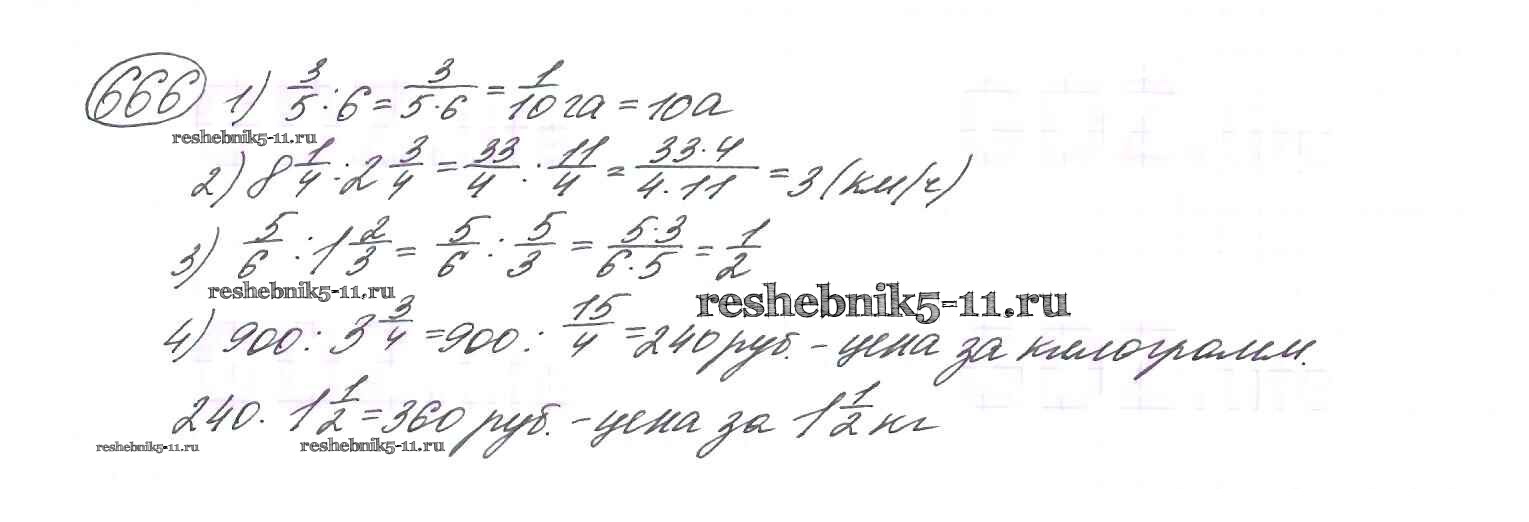 666 1) 3/5 : 6 = 3/(5·6) = 1/10 га = 10а
reshebnik5-11.ru
2) 8 1/4 : 2 3/4 = 33/4 : 11/4 = (33·4)/(4·11) = 3 (км/ч)
3) 5/6 : 1 2/3 = 5/6 : 5/3 = (5·3)/(6·5) = 1/2
reshebnik5-11.ru
reshebnik5-11.ru
4) 900 : 3 3/4 = 900 : 15/4 = 240 руб. - цена за килограмм.
240 · 1 1/2 = 360 руб. - цена за 1 1/2 кг
reshebnik5-11.ru
reshebnik5-11.ru